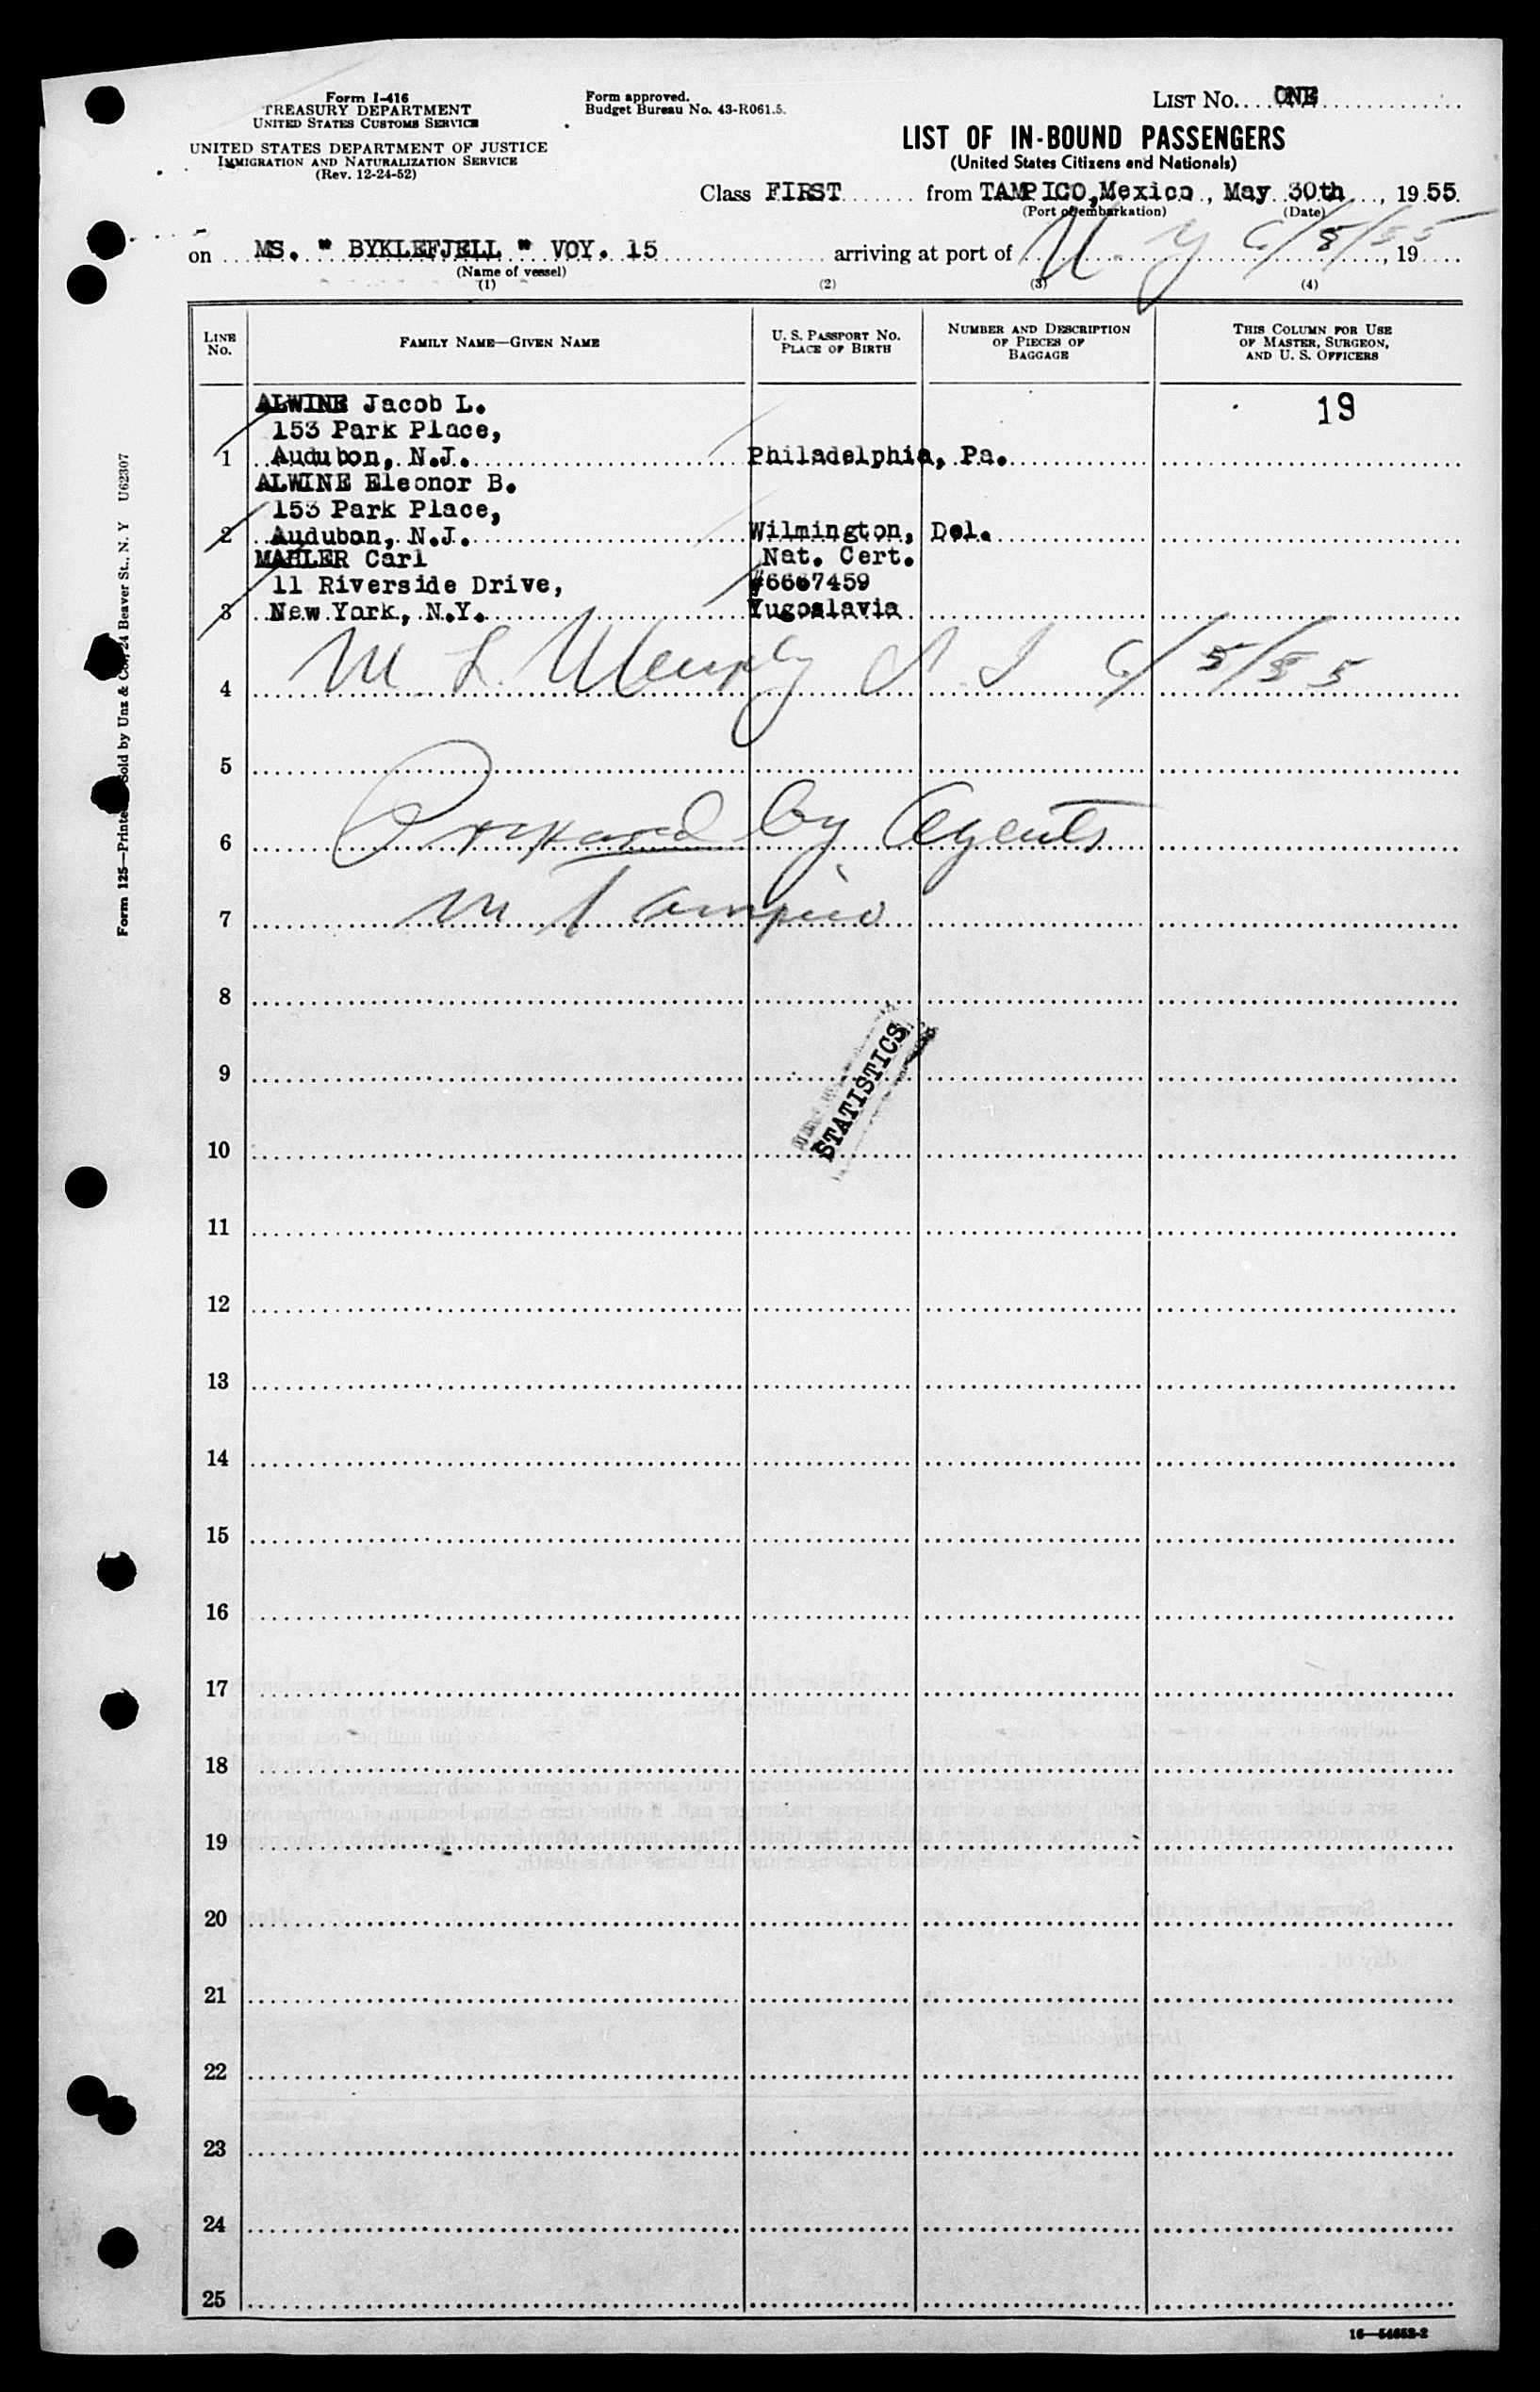 Form I-416
TREASURY DEPARTMENT
UNITED STATES CUSTOMS SERVICE
UNITED STATES DEPARTMENT OF JUSTICE
IMMIGRATION AND NATURALIZATION SERVICE
(Rev. 12-24-52)
Form approved.
Budget Bureau No. 43-R061.5.
LIST No. ONE
LIST OF IN-BOUND PASSENGERS
(United States Citizens and Nationals)
Class FIRST from TAMPICO, Mexico, May 30th, 1955
(Port of embarkation) (Date)
on MS. " BYKLEFJELL " VOY. 15 arriving at port of N. Y 6/5/55, 19
(Name of vessel)
(1) (2) (3) (4)
LINE No. FAMILY NAME—GIVEN NAME U. S. PASSPORT NO. PLACE OF BIRTH NUMBER AND DESCRIPTION OF PIECES OF BAGGAGE THIS COLUMN FOR USE OF MASTER, SURGEON, AND U. S. OFFICERS
ALWINE Jacob L. 19
153 Park Place,
1 Audubon, N.J. Philadelphia, Pa.
ALWINE Eleonor B.
153 Park Place,
2 Audubon, N.J. Wilmington, Del.
MAHLER Carl Nat. Cert.
11 Riverside Drive, #6667459
3 New York, N.Y. Yugoslavia
4 M L Murphy 6/5/55
5
6 Prepared by Agents
7 in Tampico
8
9
STATISTICS
10
11
12
13
14
15
16
17
18
19
20
21
22
23
24
25
16—54653-2
Form 125—Printed Sold by Unz & Co., 24 Beaver St., N. Y U62307